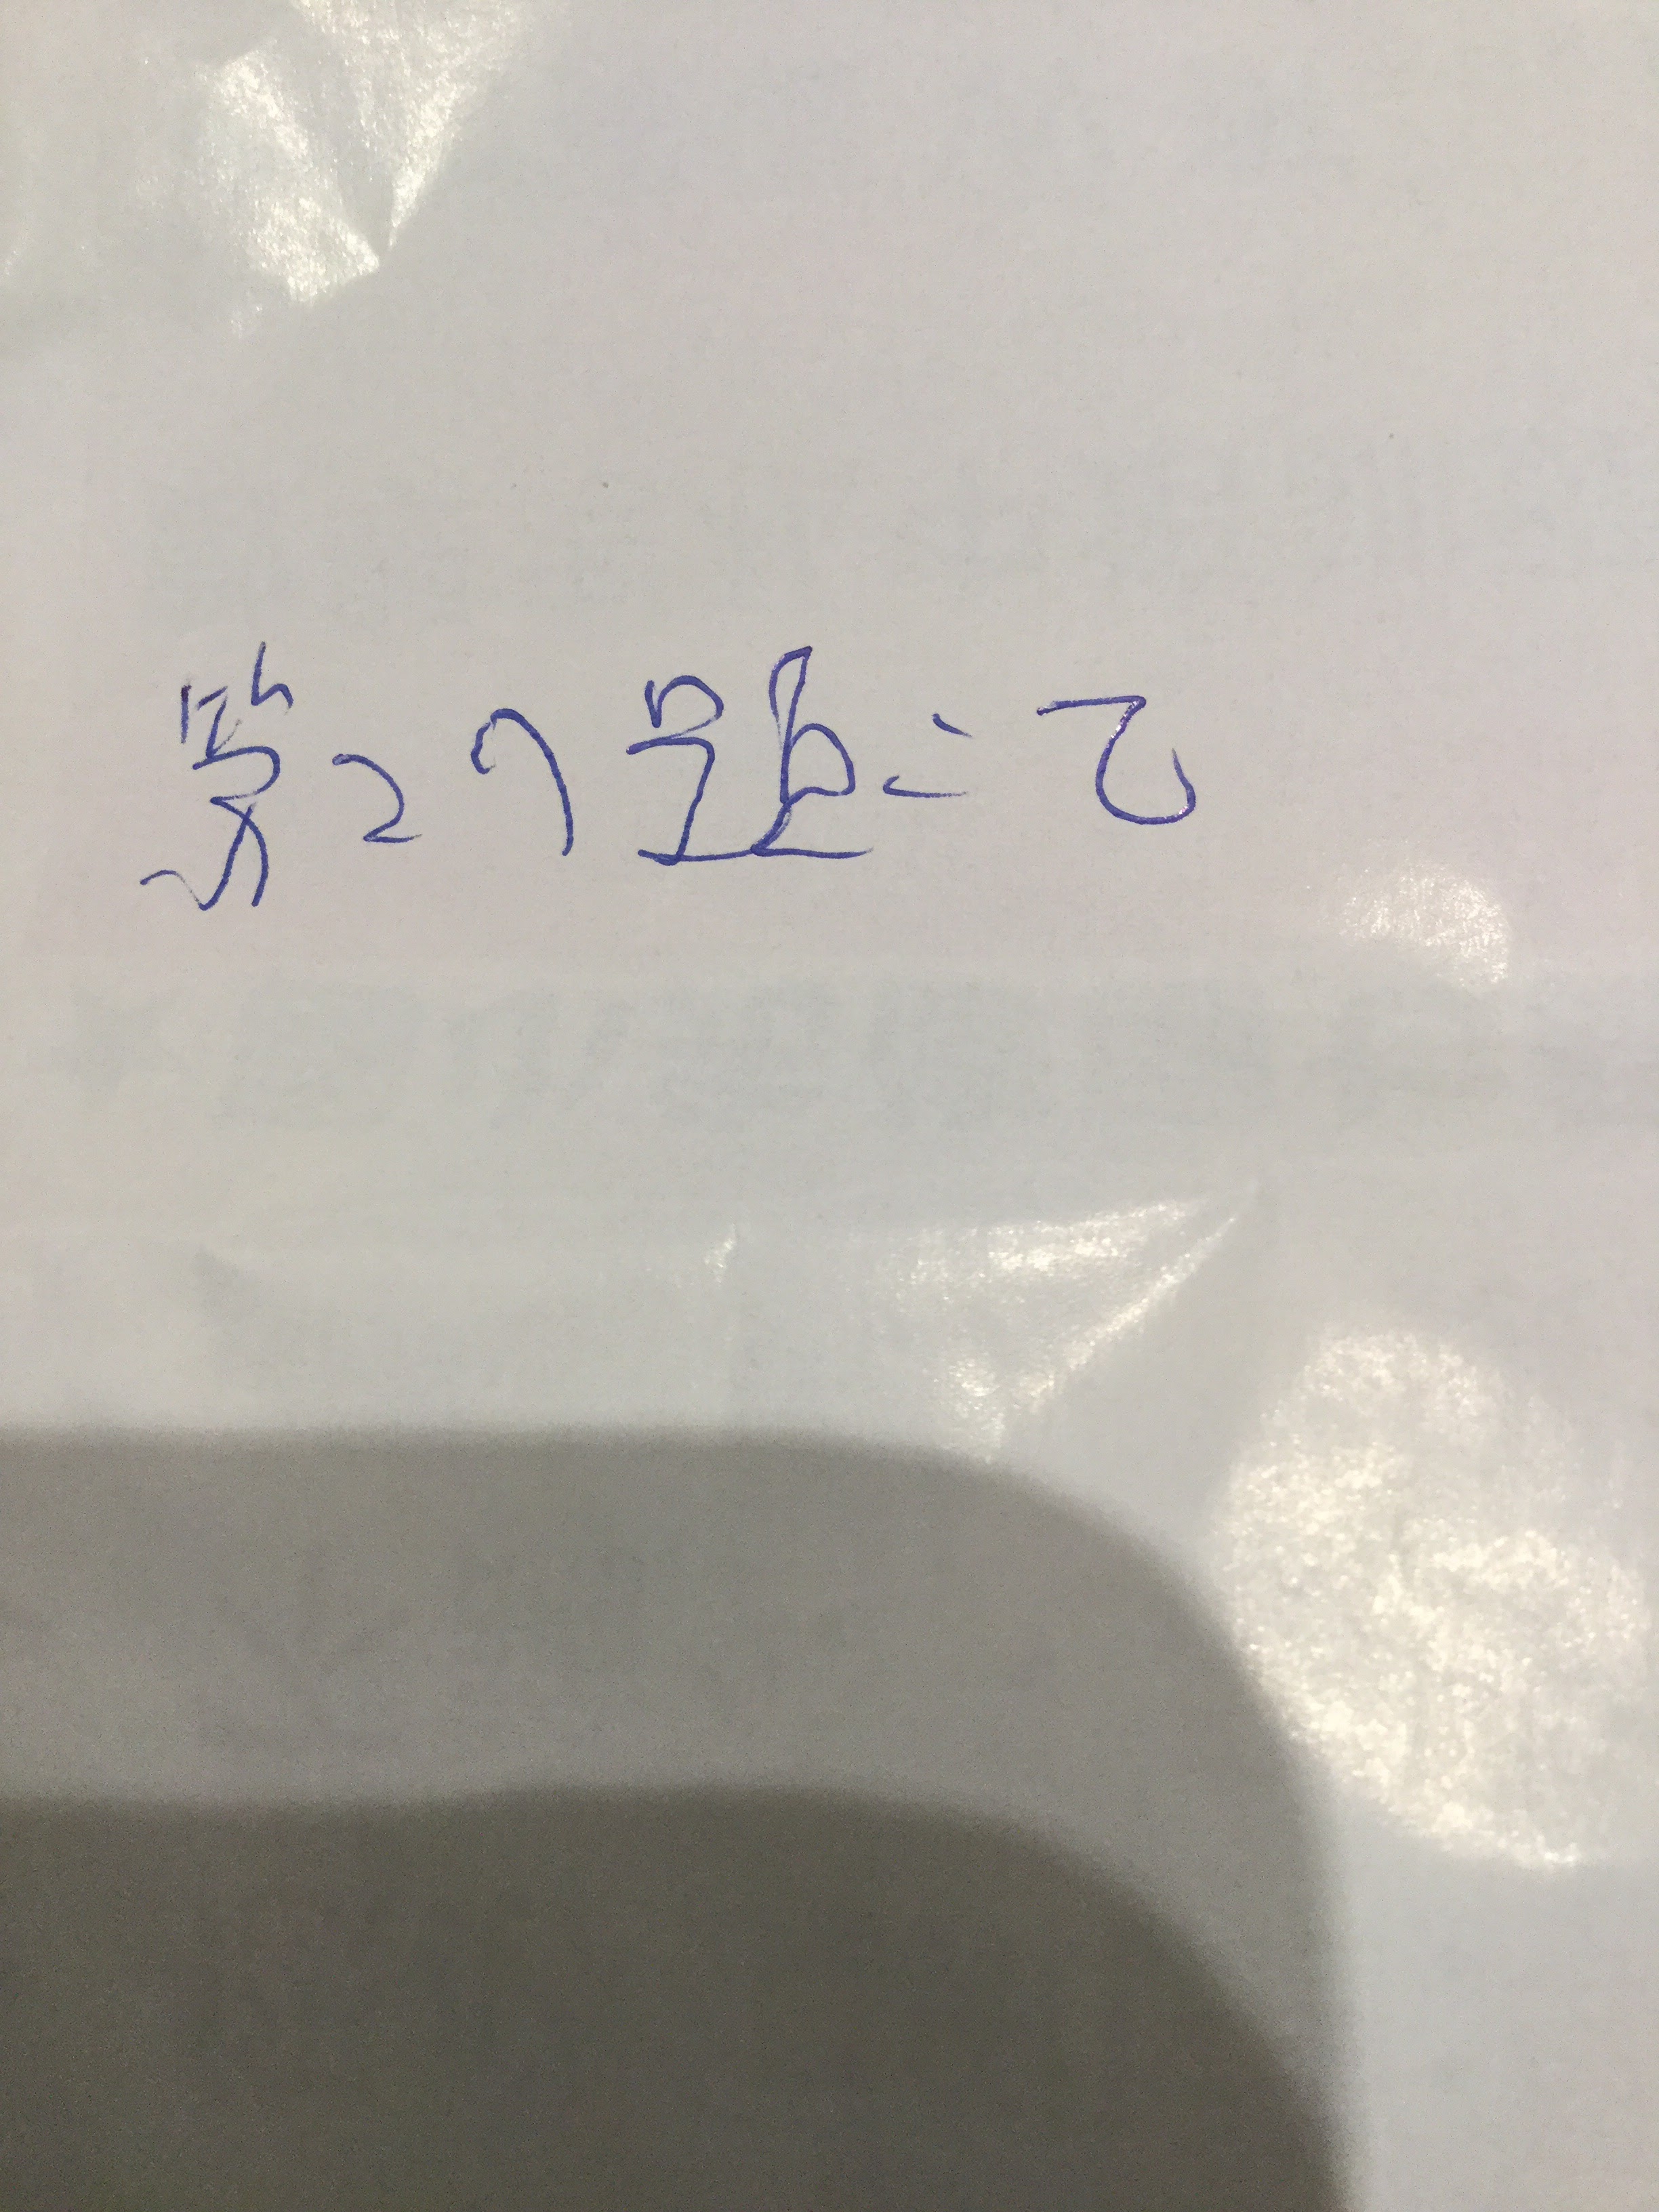 第27题=乙